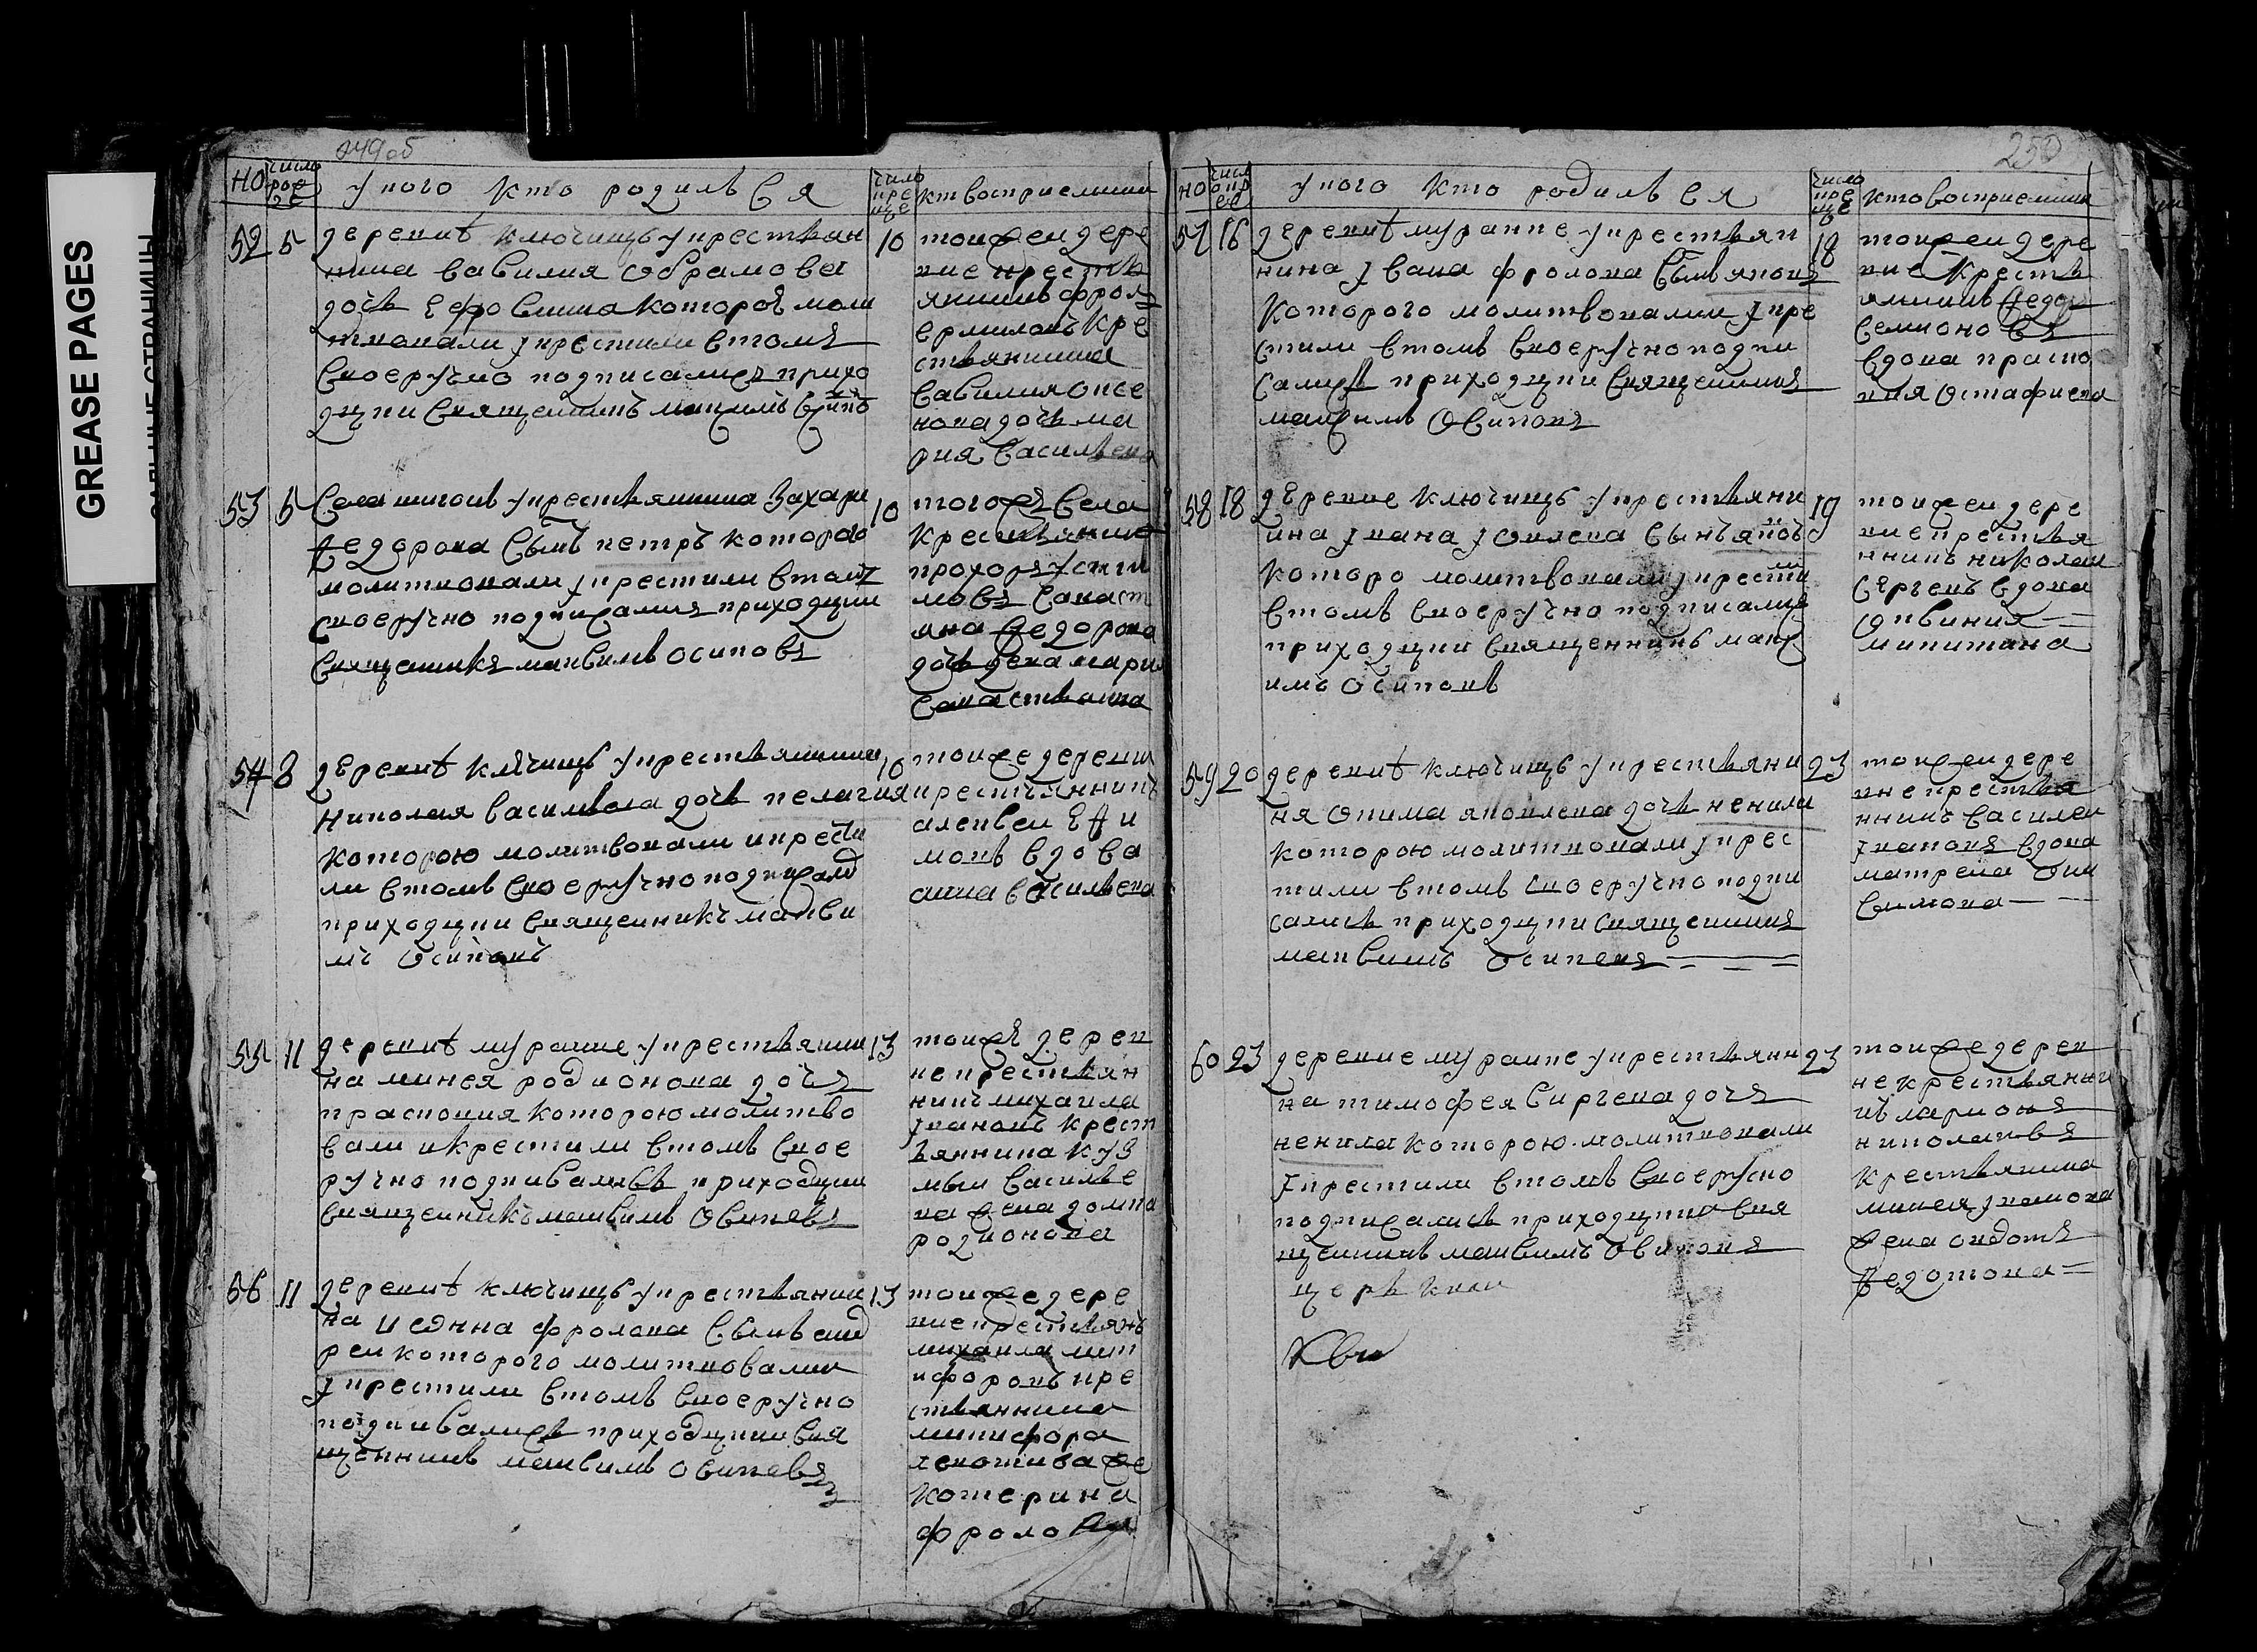 GREASE PAGES
249об
НО число рож де у кого кто родилъся число кре ще кт восприемники
52 5 деревнѣ ключищъ у крестьян 10
нина вавилия обрамова
дочь ефросинна которою моли
твовали j крестили втомъ
своеручно подписался прихо
дцки священникъ максимъ
тоижеи дере
вне кресть
янинъ фролъ
ермилавъ кре
стьянинна
вавилия овсе
нова дочь ма
рия василевна
53 5 Села шигонь у крестьянинна Захари 10
федорова сынъ петръ которого
молитвовали j крестили втомъ
своеручно подписался приходцки
священикъ маквимъ осиповъ
того жъ села
крестьянинъ
прохоръ
мовъ савast
яна федорова
дочь
54 8 деревнѣ ключищъ у крестьянинна 10
николая василева дочь пелагия
которою молитвовали и крести
ли втомъ своеручно подписался
приходцки священникъ макви
мъ осиповъ
тоиже деревни
крестьяннинъ
алекѣеи ефи
мовъ вдова
анна василевна
55 11 деревнѣ муранке у крестьянин 13
на минея родионова дочъ
прасковия которою молитво
вали и крестили втомъ свое
ручно подписались приходцки
священникъ маквимъ осиповъ
тоижъ дерев
не крестьян
нинъ михаила
jвановъ крест
ьяннина куз
мы василье
ва жена домна
родионова
56 11 деревнѣ ключищъ у крестьянин 13
на иванна фролова сынъ анд
реи которого молитвовали
j крестили втомъ своеручно
подписались приходцки свя
щенникъ маквимъ осиповъ
тоиже дере
вне крестьянъ
михаила мит
ифоровъ кре
стьяннина
микифора
котерина
фролова
250
НО число у кого кто родилъся число кре ще кто восприемники
57 16 деревнѣ муранке у крестьян 18
нина jвана фролова сынъ яковъ
которого молитвовали j кре
стили втомъ своеручно подпи
сались приходцки священникъ
максимъ осиповъ
тоижеи дере
вне кресть
янинъ федоръ
семионовъ
вдова праско
вия остафиева
58 18 деревне ключищъ у крестьяни 19
нна jвана jовлева сынъ яковъ
которо молитвовали j крестили
втомъ своеручно подписались
приходцки священникъ макс
имъ осиповъ
тоижеи дере
вне крестья
ннинъ николаи
сергеивъ вдова
микитина
59 20 деревнѣ ключищъ у крестьяни 23
ня якима яковлева дочь ненила
которою молитвовали j крес
тили втомъ своеручно подпи
сались приходцки священникъ
маквимъ осиповъ
тоижеи дере
вне крестья
ннинъ василеи
jвановъ вдова
матрена
симова
60 23 деревне муранке у крестьянн 23
на тимофея сиргева дочъ
ненила которою молитвовали
j крестили втомъ своеручно
подписались приходцки свя
щенникъ маквимъ осиповъ
церькви
тоиже дерев
не крестьянни
нъ ларионъ
николаивъ
крестьянина
минея jванова
жена овдотъя
федотова